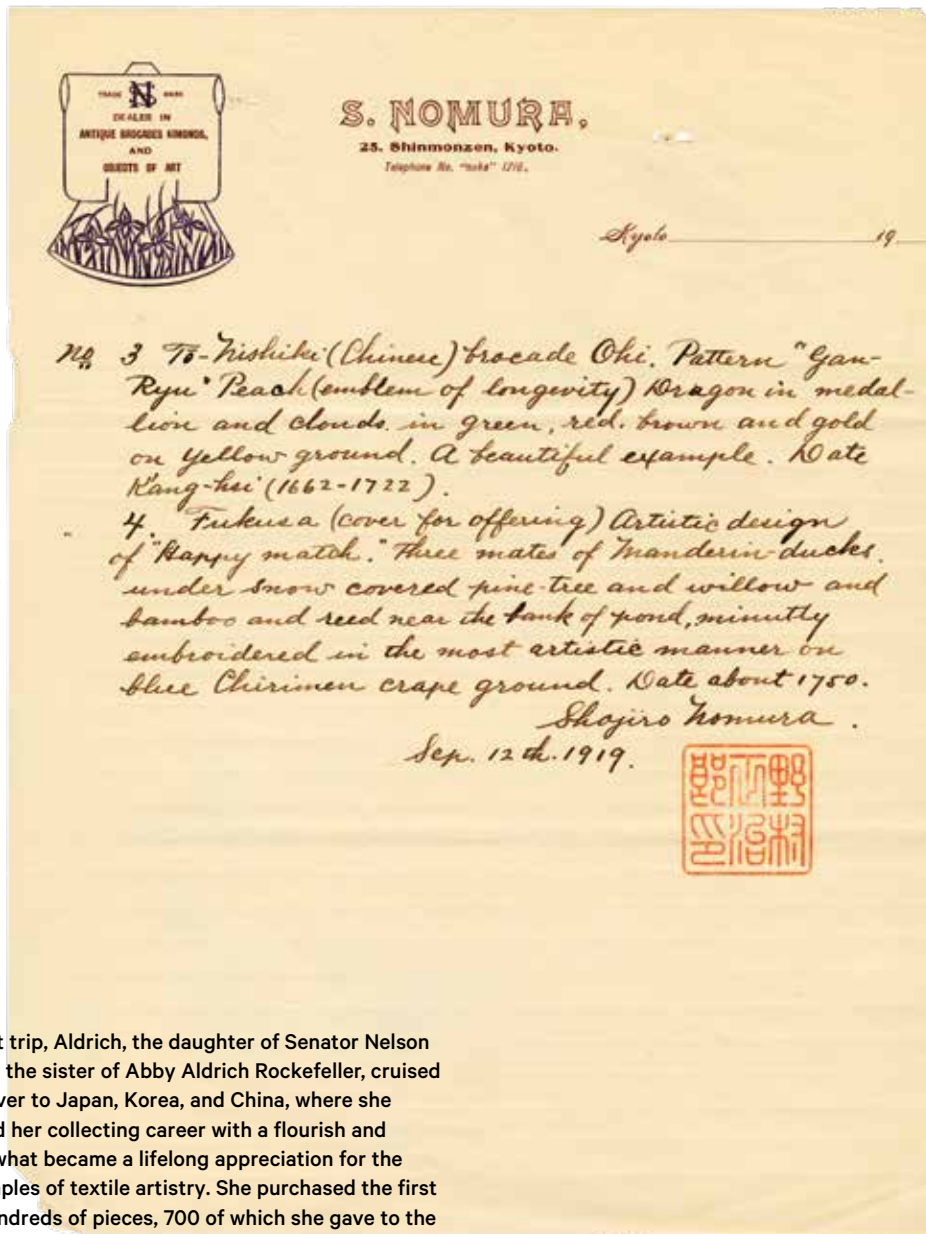 TRADE NS MARK
DEALER IN
ANTIQUE BROCADES KIMONOS,
AND
OBJECTS OF ART
S. NOMURA,
25. Shinmonzen, Kyoto.
Telephone No.
Kyoto 19
No 3 To-Nishiki (Chinese) brocade Ohi. Pattern "Gan-
Ryu" Peach (emblem of longevity) Dragon in medal-
lion and clouds. in green, red. brown and gold
on yellow ground. A beautiful example. Date
K'ang-hsi (1662-1722).
4. Fukusa (cover for offering) Artistic design
of "Happy match." Three mates of Manderin-ducks.
under snow covered pine-tree and willow and
bamboo and reed near the bank of pond, minutly
embroidered in the most artistic manner on
blue Chirimen crape ground. Date about 1750.
Shojiro Nomura.
Sep. 12th. 1919.
野村
正治
郎印
t trip, Aldrich, the daughter of Senator Nelson
the sister of Abby Aldrich Rockefeller, cruised
ver to Japan, Korea, and China, where she
d her collecting career with a flourish and
what became a lifelong appreciation for the
ples of textile artistry. She purchased the first
ndreds of pieces, 700 of which she gave to the